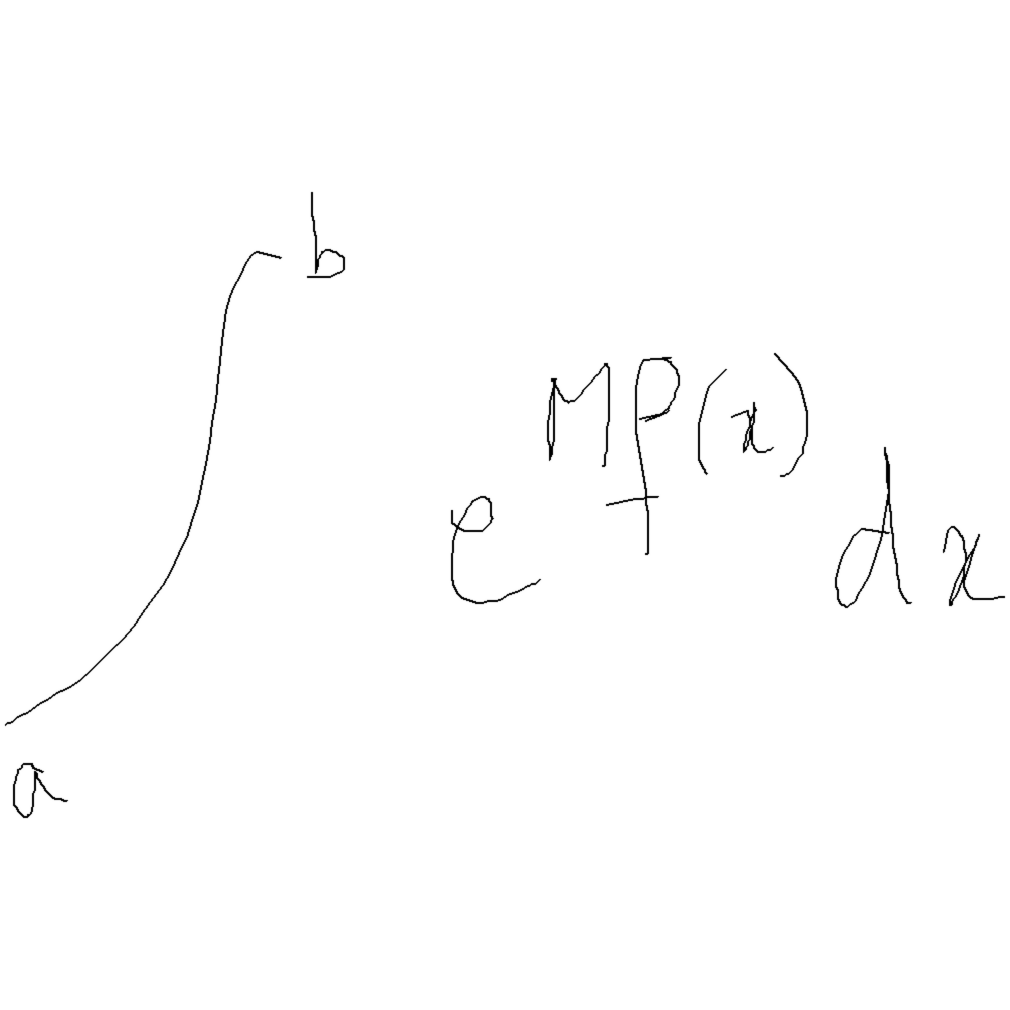 ∫_a^b e^{Mf(x)} dx